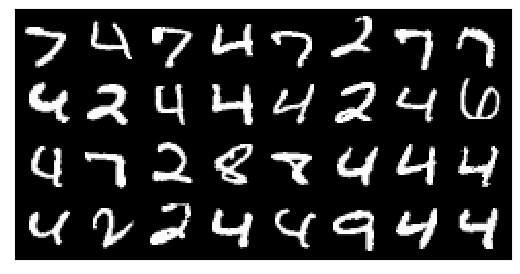 7 4 7 4 7 2 7 7
4 2 4 4 4 2 4 6
4 7 2 8 8 4 4 4
4 2 2 4 4 9 4 4